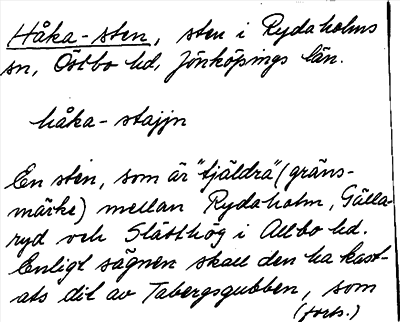 Håka-sten, sten i Rydaholms
sn, Östbo hd, Jönköpings län.
håka-stajjn
En sten, som är "fjäldra" (gräns-
märke) mellan Rydaholm, Gälla-
ryd och Slätthög i Allbo hd.
Enligt sägnen skall den ha kast-
ats dit av Tabergsgubben, som
(forts.)